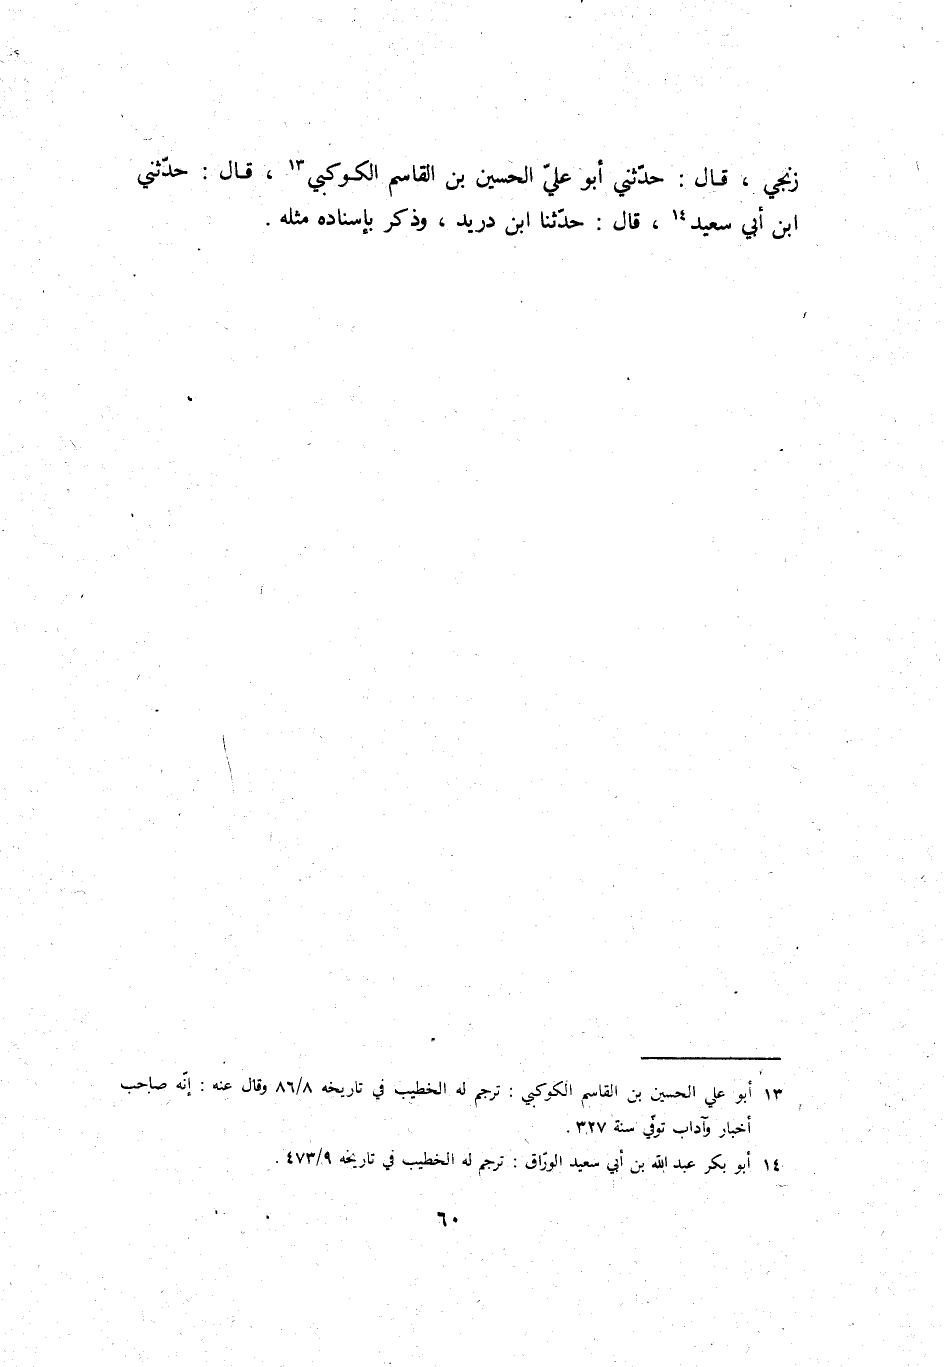 زنجي ، قـال : حدّثني أبو عليّ الحسين بن القاسم الكـوكبي١٣ ، قـال : حدّثني
ابن أبي سعيد١٤ ، قال : حدّثنا ابن دريد ، وذكر بإسناده مثله .
١٣ أبو علي الحسين بن القاسم الكوكبي : ترجم له الخطيب في تاريخه ٨٦/٨ وقال عنه : إنّه صاحب
أخبار وآداب توفّي سنة ٣٢٧ .
١٤ أبو بكر عبد الله بن أبي سعيد الورّاق : ترجم له الخطيب في تاريخه ٤٧٣/٩ .
٦٠